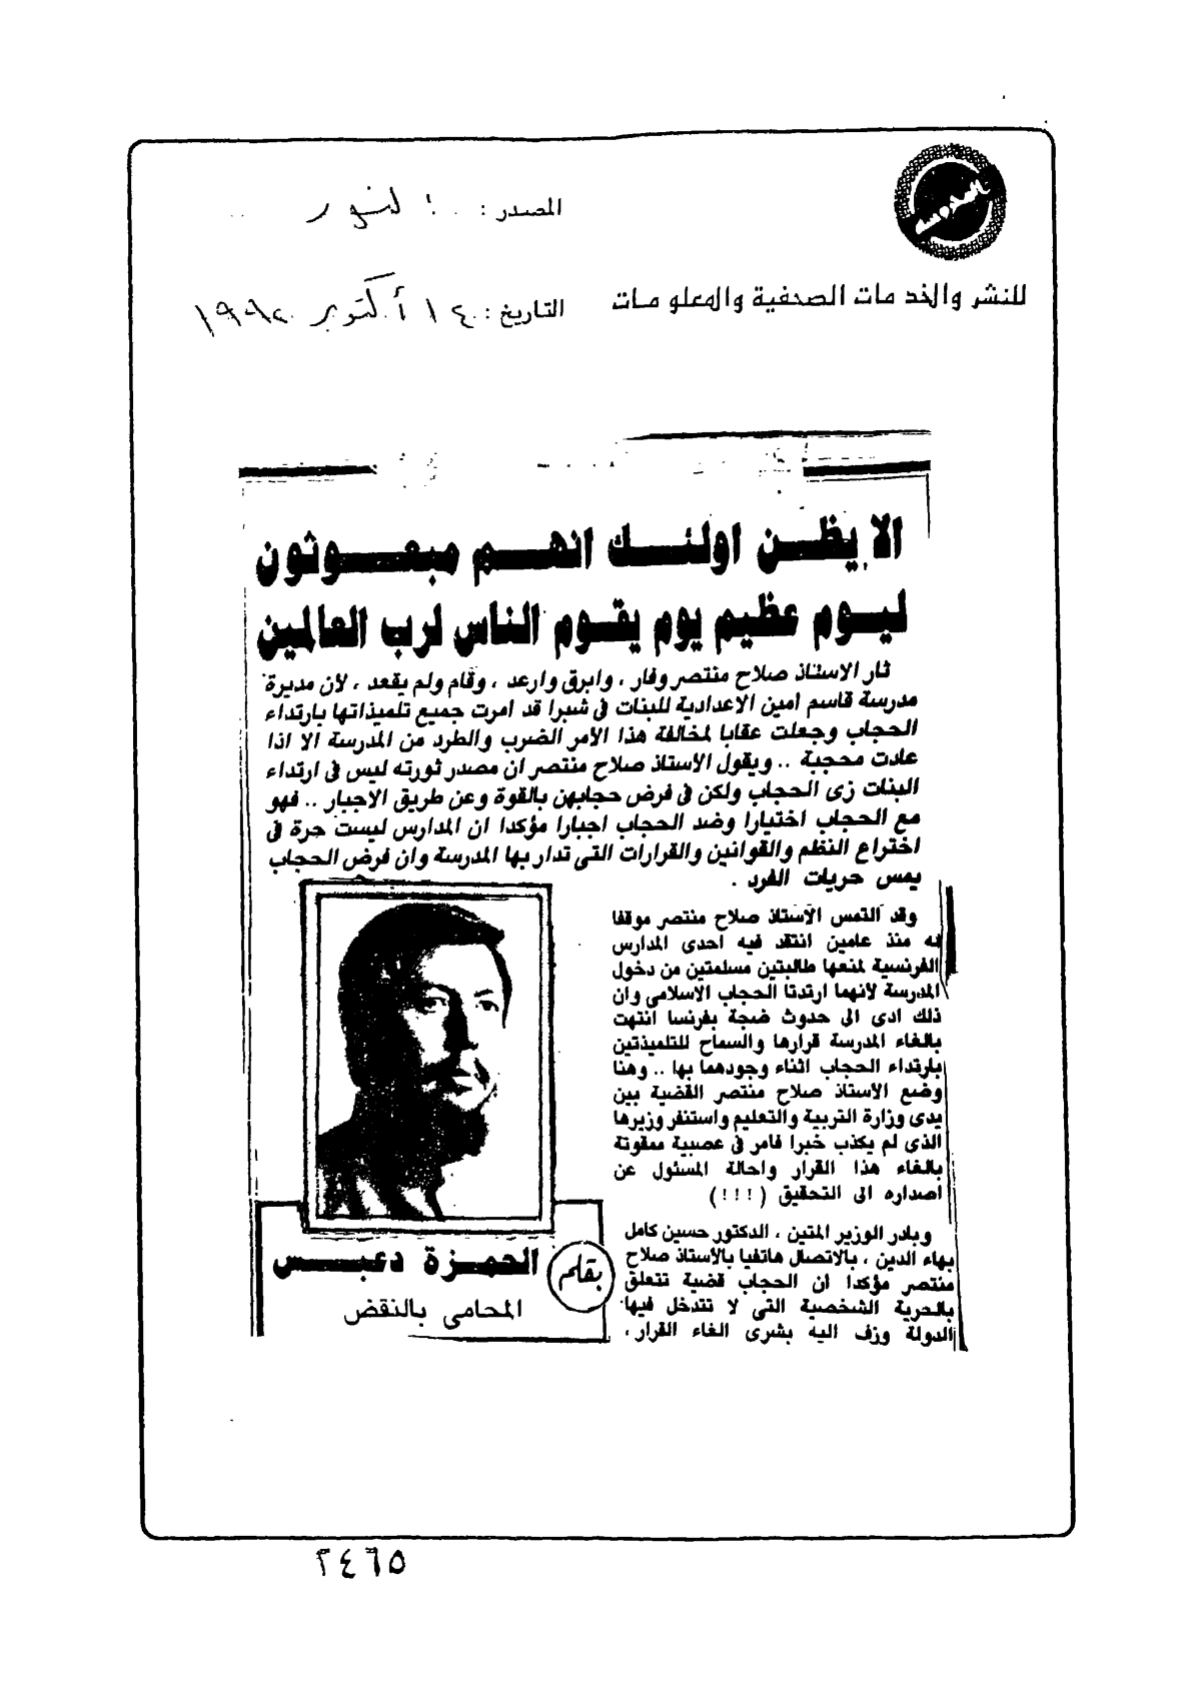 المصدر : النور
للنشر والخدمات الصحفية والمعلومات
التاريخ : ١٤ أكتوبر ١٩٩٢
الا يظن اولئك انهم مبعوثون
ليوم عظيم يوم يقوم الناس لرب العالمين
ثار الاستاذ صلاح منتصر وفار ، وابرق وارعد ، وقام ولم يقعد ، لان مديرة
مدرسة قاسم امين الاعدادية للبنات فى شبرا قد امرت جميع تلميذاتها بارتداء
الحجاب وجعلت عقابا لمخالفة هذا الامر الضرب والطرد من المدرسة الا اذا
عادت محجبة .. ويقول الاستاذ صلاح منتصر ان مصدر ثورته ليس فى ارتداء
البنات زى الحجاب ولكن فى فرض حجابهن بالقوة وعن طريق الاجبار .. فهو
مع الحجاب اختيارا وضد الحجاب اجبارا مؤكدا ان المدارس ليست حرة فى
اختراع النظم والقوانين والقرارات التى تدار بها المدرسة وان فرض الحجاب
يمس حريات الفرد .
وقد التمس الاستاذ صلاح منتصر موقفا
له منذ عامين انتقد فيه احدى المدارس
الفرنسية لمنعها طالبتين مسلمتين من دخول
المدرسة لأنهما ارتدتا الحجاب الاسلامى وان
ذلك ادى الى حدوث ضجة بفرنسا انتهت
بالغاء المدرسة قرارها والسماح للتلميذتين
بارتداء الحجاب اثناء وجودهما بها .. وهنا
وضع الاستاذ صلاح منتصر القضية بين
يدى وزارة التربية والتعليم واستنفر وزيرها
الذى لم يكذب خبرا فامر فى عصبية ممقوتة
بالغاء هذا القرار واحالة المسئول عن
اصداره الى التحقيق (!!!)
وبادر الوزير المتين ، الدكتور حسين كامل
بهاء الدين ، بالاتصال هاتفيا بالأستاذ صلاح
منتصر مؤكدا ان الحجاب قضية تتعلق
بالحرية الشخصية التى لا تتدخل فيها
الدولة وزف اليه بشرى الغاء القرار ،
بقلم
الحمزة دعبس
المحامى بالنقض
٢٤٦٥